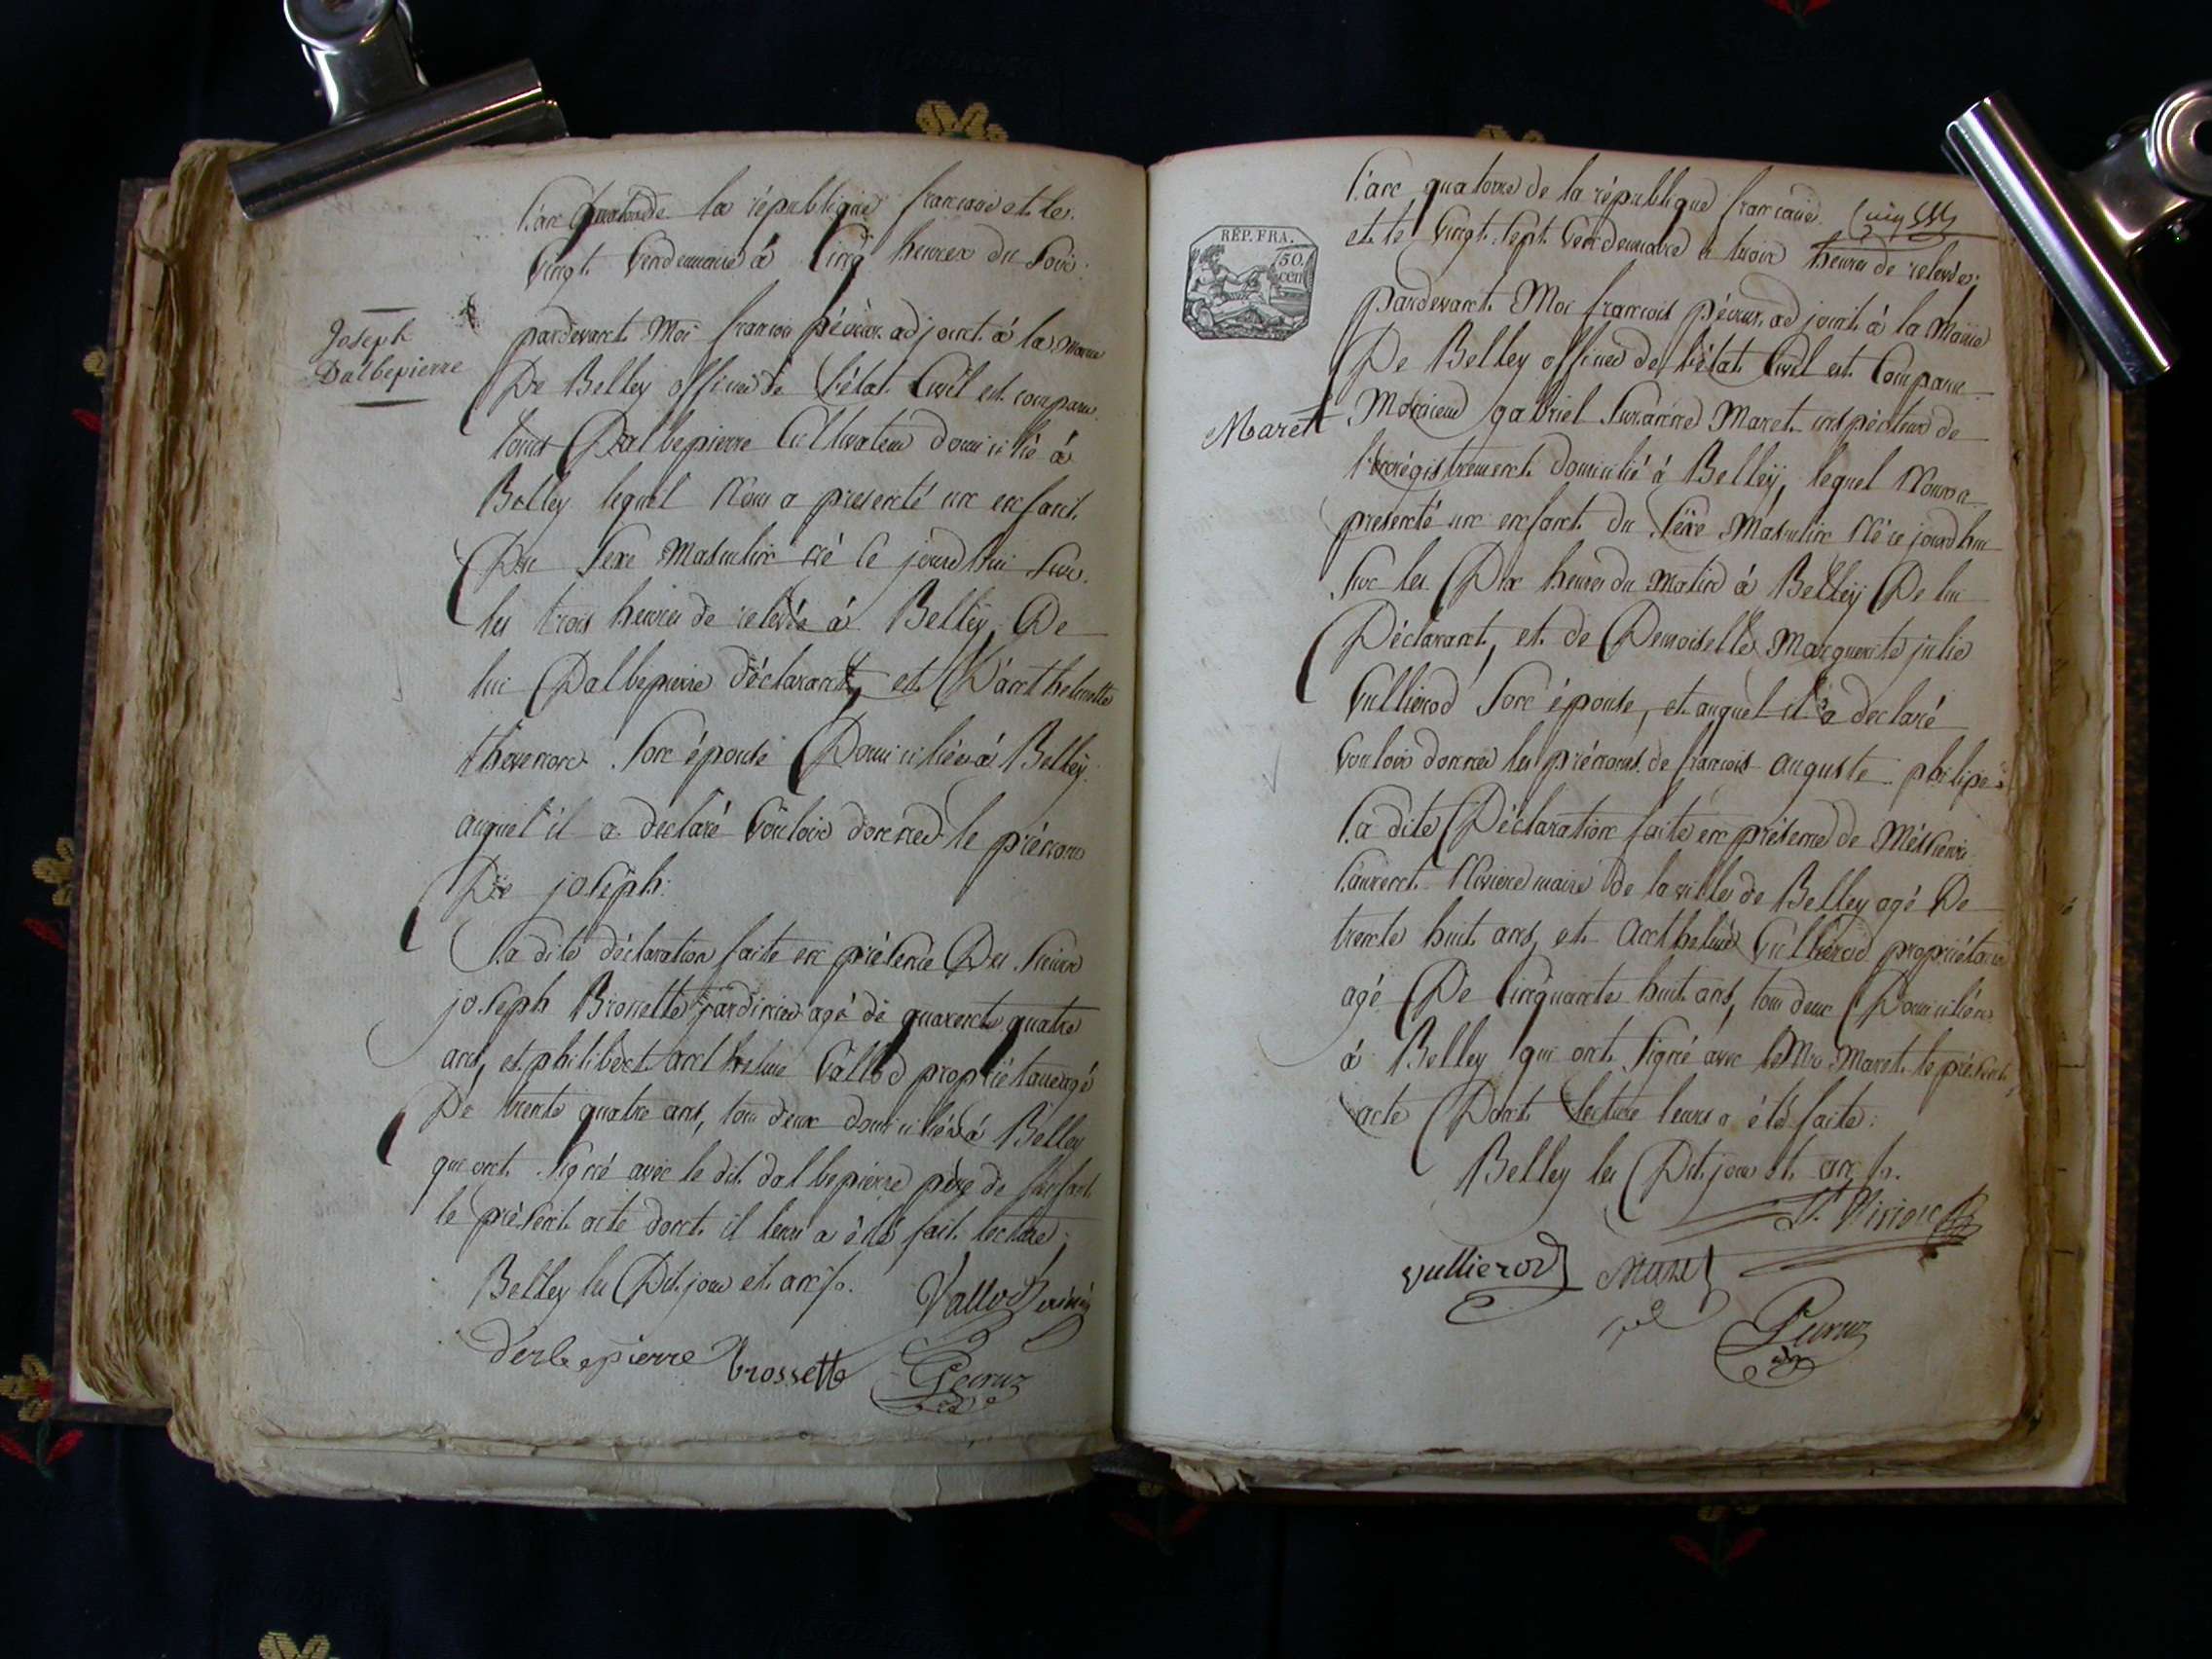 l'an quatorze de la république francaise et le
vingt vendemiaire à cinq heures du soir
pardevant Moi francois pécuux adjoint à la Mairie
Joseph
Dalbepierre
De Belley officier de l'état Civil est comparu
Louis Dalbepierre Cultivateur domicilié à
Belley lequel Nous a presenté un enfant
Du Sexe Masculin né ce jourdhui Sur
les trois heures de relevée à Belley De
lui Dalbepierre déclarant, et D'anthelmette
thevenon Son épouse Domiciliés à Belley
auquel il a declaré vouloir donner le prénom
De joseph.
la dite déclaration faite en présence Des Sieurs
joseph Brossette jardinier agé de quarente quatre
ans, et philibert anthelme Vallod propriétaire agé
De trente quatre ans, tous deux domiciliés à Belley
qui ont Signé avec le dit dalbepierre père de l'enfant
le présent acte dont il leur a été fait lecture;
Belley les Dit jour et an
Vallod
derbepierre brossette
l'an quatorze de la république francaise
et le vingt Sept vendemiaire à trois heures de relevée,
REP. FRA.
50.
cen
pardevant Moi francois pécuux adjoint à la Mairie
De Belley officier de l'état Civil est Comparu
Maret
Monsieur gabriel Suzanne Maret inspecteur de
l'enrégistrement domicilié à Belleÿ, lequel Nous a
presenté un enfant du Sexe Masculin Né ce jourdhui
Sur les Dix heures du Matin à Belleÿ De lui
Déclarant, et de Demoiselle Marguerite julie
Vullierod Son épouse, et auquel il a declaré
vouloir donner les prénoms de francois auguste philipe
la dite Déclaration faite en présence de Méssieurs
Laurent Niviere maire de la ville de Belley agé De
trente huit ans, et anthelme Vullierod propriétaire
agé De Cinquante huit ans, tous deux Domiciliés
à Belley qui ont Signé avec Mr Maret le présent
acte Dont lecture leurs a été faite:
Belley les Dit jour et an
vullierod Maret